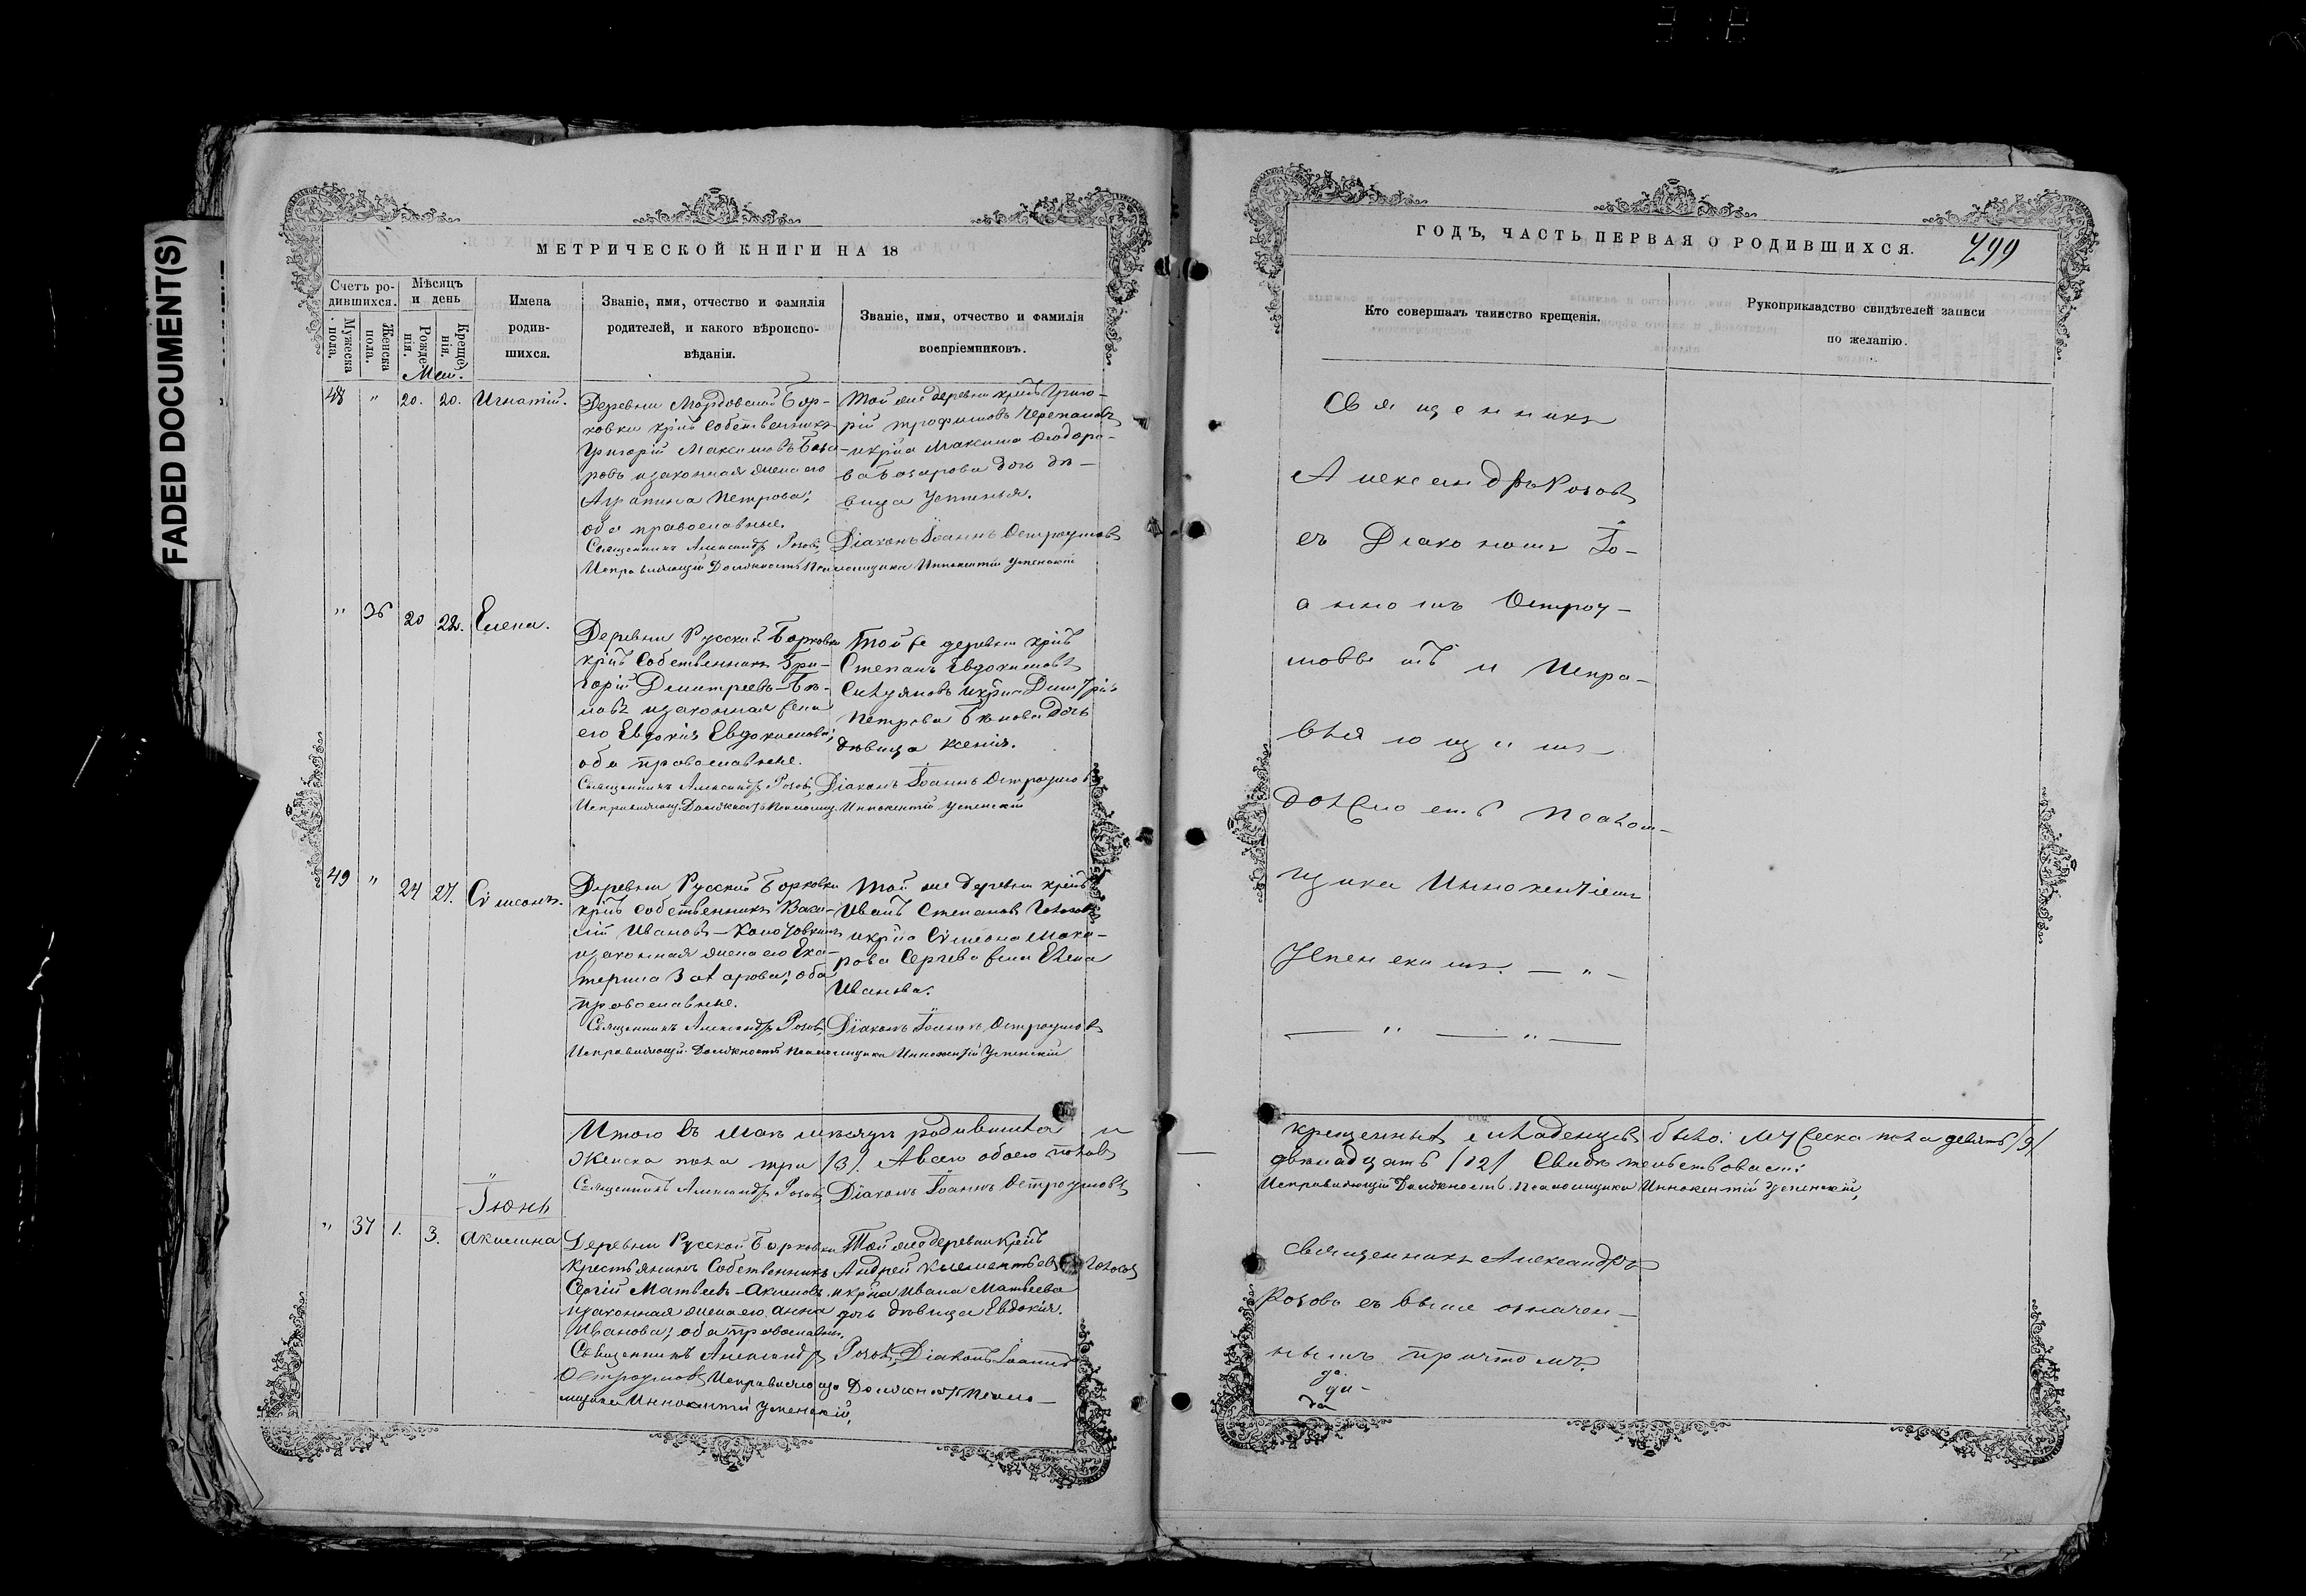 FADED DOCUMENT(S)
МЕТРИЧЕСКОЙ КНИГИ НА 18
Счетъ ро-
дившихся.
Мужеска пола.
Женска пола.
Мѣсяцъ
и день
Рожденія.
Крещенія.
Имена
родив-
шихся.
Званіе, имя, отчество и фамилія
родителей, и какого вѣроиспо-
вѣданія.
Званіе, имя, отчество и фамилія
воспріемниковъ.
Маи.
48 " 20. 20. Игнатій.
Деревни Мордовской Бор-
ковки крнъ собственникъ
Григорій Максимовъ
и законная жена его
Агрипина Петрова;
оба православные.
Священникъ Александръ Розовъ,
Исправляющій Должность Псаломщика Иннокентій Успенскій
Той же деревни крнъ Григо-
рій Трофимовъ Черепановъ
и крна Максима Ѳеодоро-
ва дочь дѣ-
вица Устинья.
Діаконъ Іоаннъ Остроумовъ
" 36 20 22. Елена.
Деревни Русской Борковки
крнъ собственникъ Гри-
горій Димитреевъ
и законная жена
его Евдокія Евдокимова;
оба православные.
Священникъ Александръ Розовъ,
Исправляющ. Должность Псаломщ. Иннокентій Успенскій
Той же деревни крнъ
Степанъ Евдокимовъ
и крна Димитрія
Петрова дочь
дѣвица Ксенія.
Діаконъ Іоаннъ Остроумовъ
49 " 24 27. Сѵмеонъ.
Деревни Русской Борковки
крнъ собственникъ Васи-
лій Ивановъ
и законная жена его Ека-
терина Захарова; оба
православные.
Священникъ Александръ Розовъ,
Исправляющій Должность Псаломщика Иннокентій Успенскій
Той же деревни крнъ
Иванъ Степановъ
и крна Сѵмеона Мака-
рова Сергѣева жена Елена
Иванова.
Діаконъ Іоаннъ Остроумовъ
Итого въ Маѣ мѣсяцѣ родившихся и
Женска пола три /3/. А всего обоего половъ
Священникъ Александръ Розовъ, Діаконъ Іоаннъ Остроумовъ,
Іюнь
" 37 1. 3. Акилина
Деревни Русской Борковки
Крестьянинъ Собственникъ
Сергій Матвеевъ Акимовъ
и законная жена его Анна
Иванова; оба православн.
Той же деревни крнъ
Андрей Клементьевъ
и крна Ивана Матвеева
дочь дѣвица Евдокія.
Священникъ Александръ Розовъ, Діаконъ Іоаннъ
Остроумовъ, Исправляющ. Должность Псало-
мщика Иннокентій Успенскій,
ГОДЪ, ЧАСТЬ ПЕРВАЯ О РОДИВШИХСЯ.
799
Кто совершалъ таинство крещенія.
Рукоприкладство свидѣтелей записи
по желанію.
Священникъ
Александръ Розовъ
съ Діакономъ Іо-
анномъ Остроу-
мовымъ и Испра-
вляющимъ
должность Псалом-
щика Иннокентіемъ
Успенскимъ. — " —
— " — " —
крещенныхъ младенцевъ было: мужеска пола девять /9/
двенадцать /12/ Свидѣтельствовали:
Исправляющій Должность Псаломщика Иннокентій Успенскій,
Священникъ Александръ
Розовъ съ выше означен-
нымъ причтомъ.